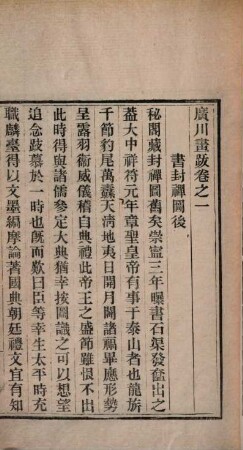 廣川畫跋卷之一
書封禪圖後
秘閣藏封禪圖舊矣崇寧三年曝書石渠發奩出之
蓋大中祥符元年章聖皇帝有事于泰山者也龍旂
千節豹尾萬纛天淸地夷日月開闢諸福畢應形勢
呈露羽衞威儀稽自典禮此帝王之盛節雖恨不出
此時得與諸儒參定大典猶幸按圖識之可以想望
追念跂慕於一時也旣而歎曰臣等幸生太平時充
職麟臺得以文墨緝摩論著國典朝廷禮文宜有知